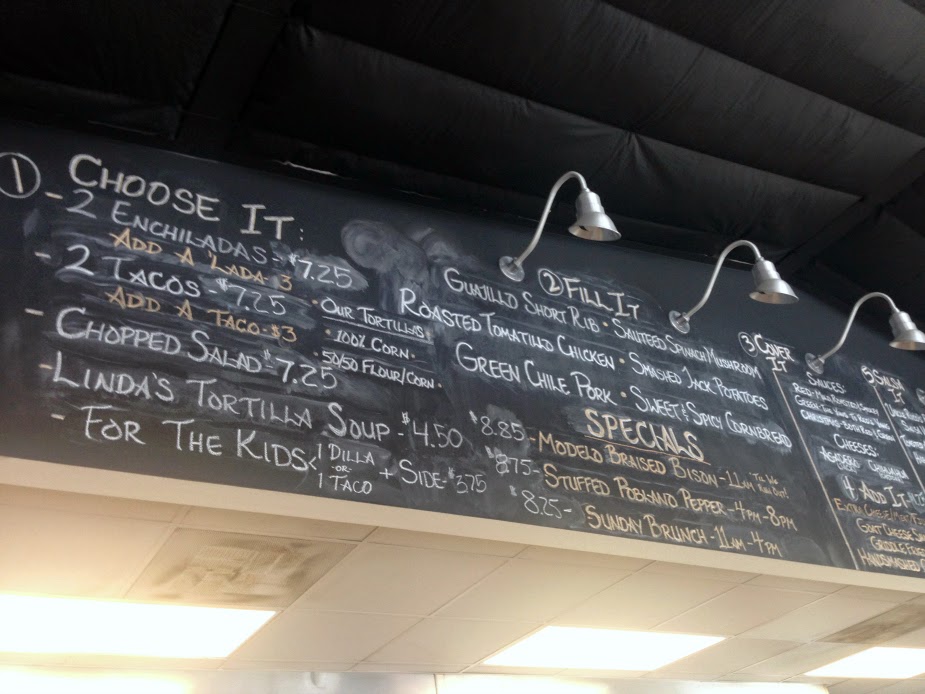 ① CHOOSE IT:
- 2 ENCHILADAS - $7.25
ADD A 'LADA - 3
- 2 TACOS $7.25
ADD A TACO - $3
- CHOPPED SALAD - $7.25
- LINDA'S TORTILLA SOUP - $4.50
- FOR THE KIDS < 1 DILLA -OR- 1 TACO + SIDE - $3.75
• OUR TORTILLAS
• 100% CORN •
• 50/50 FLOUR/CORN •
② FILL IT
GUAJILLO SHORT RIB • SAUTEED SPINACH MUSHROOM
ROASTED TOMATILLO CHICKEN • SMASHED JACK POTATOES
GREEN CHILE PORK • SWEET & SPICY CORNBREAD
SPECIALS
$8.85 - MODELO BRAISED BISON - 11AM
8.75 - STUFFED POBLANO PEPPER - 4PM - 8PM
$8.25 - SUNDAY BRUNCH - 11AM - 4PM
③ COVER IT
SAUCES:
CHEESES:
ASADERO
4 ADD IT
EXTRA CHEESE
GOAT CHEESE
HANDSMASHED
SALSA IT